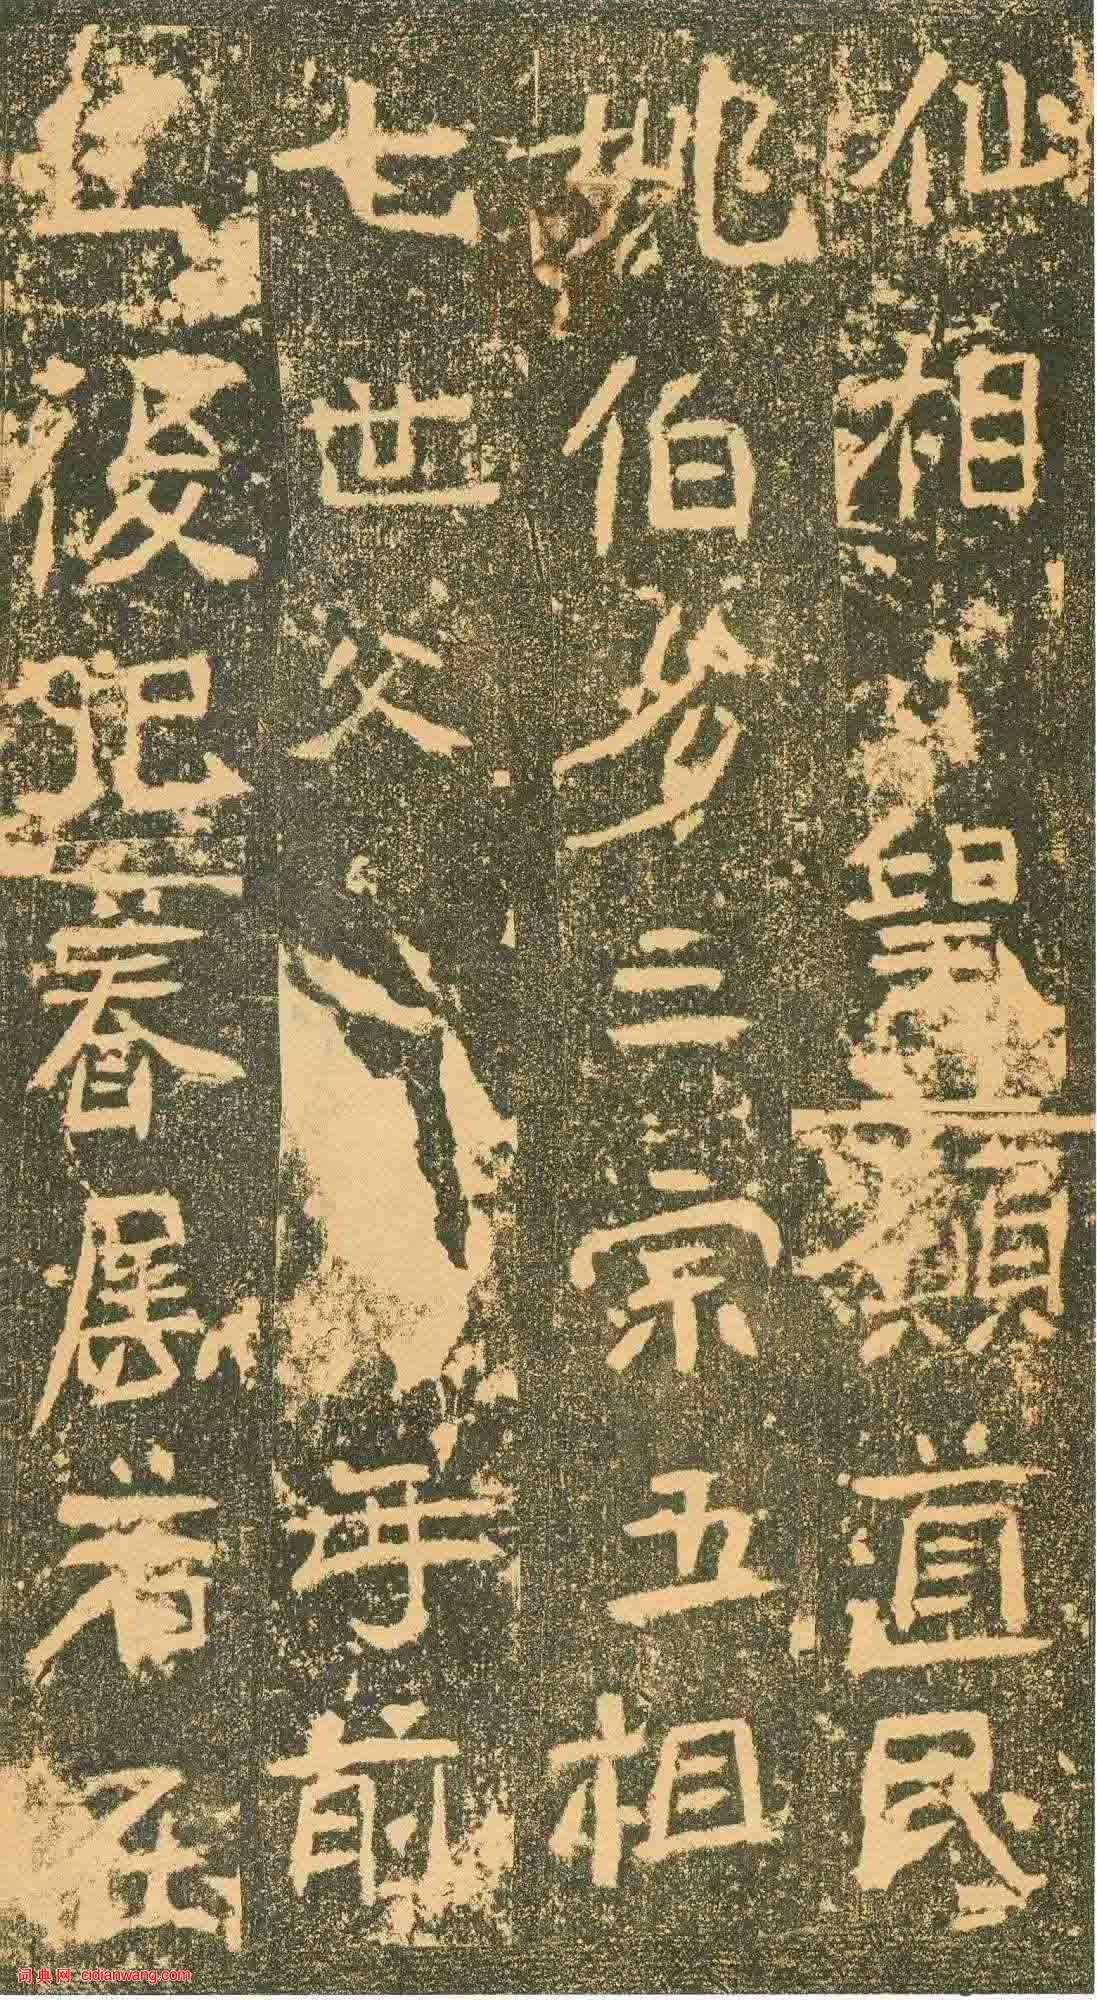 仙相聖願道民
姚伯多三宗五祖
七世父母前
亡後死眷屬若在
词典网 cidianwang.com